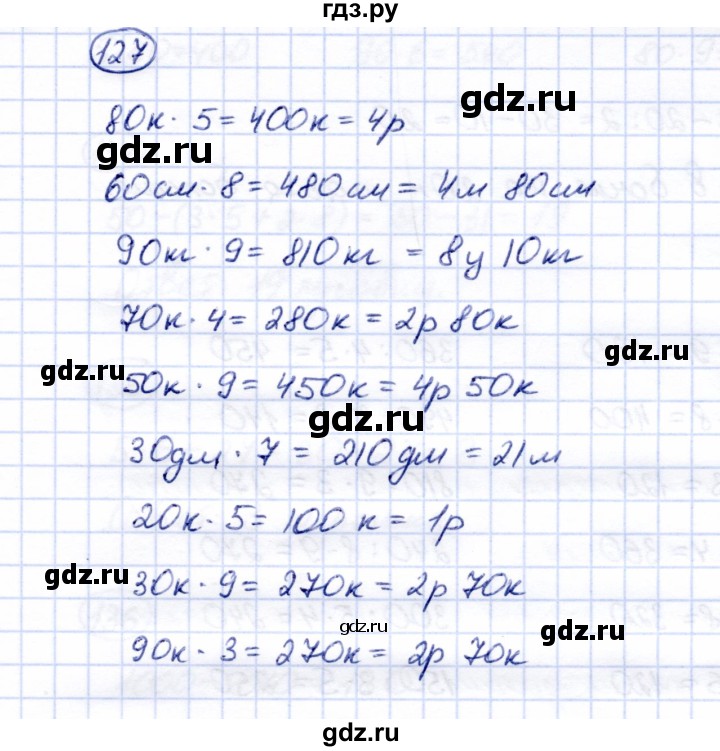 гдз.ру
127
80к · 5 = 400к = 4р
gdz.ru
gdz.ru
60см · 8 = 480см = 4м 80см
90кг · 9 = 810кг = 8ц 10кг
70к · 4 = 280к = 2р 80к
gdz.ru
gdz.ru
50к · 9 = 450к = 4р 50к
gdz.ru
30дм · 7 = 210дм = 21м
20к · 5 = 100к = 1р
gdz.ru
30к · 9 = 270к = 2р 70к
gdz.ru
gdz.ru
90к · 3 = 270к = 2р 70к
gdz.ru
gdz.ru